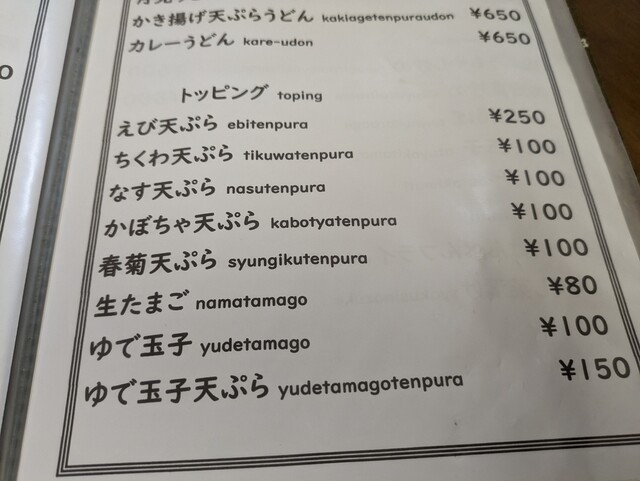 かき揚げ天ぷらうどん kakiagetenpuraudon ¥650
カレーうどん kare-udon ¥650
トッピング toping
えび天ぷら ebitenpura ¥250
ちくわ天ぷら tikuwatenpura ¥100
なす天ぷら nasutenpura ¥100
かぼちゃ天ぷら kabotyatenpura ¥100
春菊天ぷら syungikutenpura ¥100
生たまご namatamago ¥80
ゆで玉子 yudetamago ¥100
ゆで玉子天ぷら yudetamagotenpura ¥150